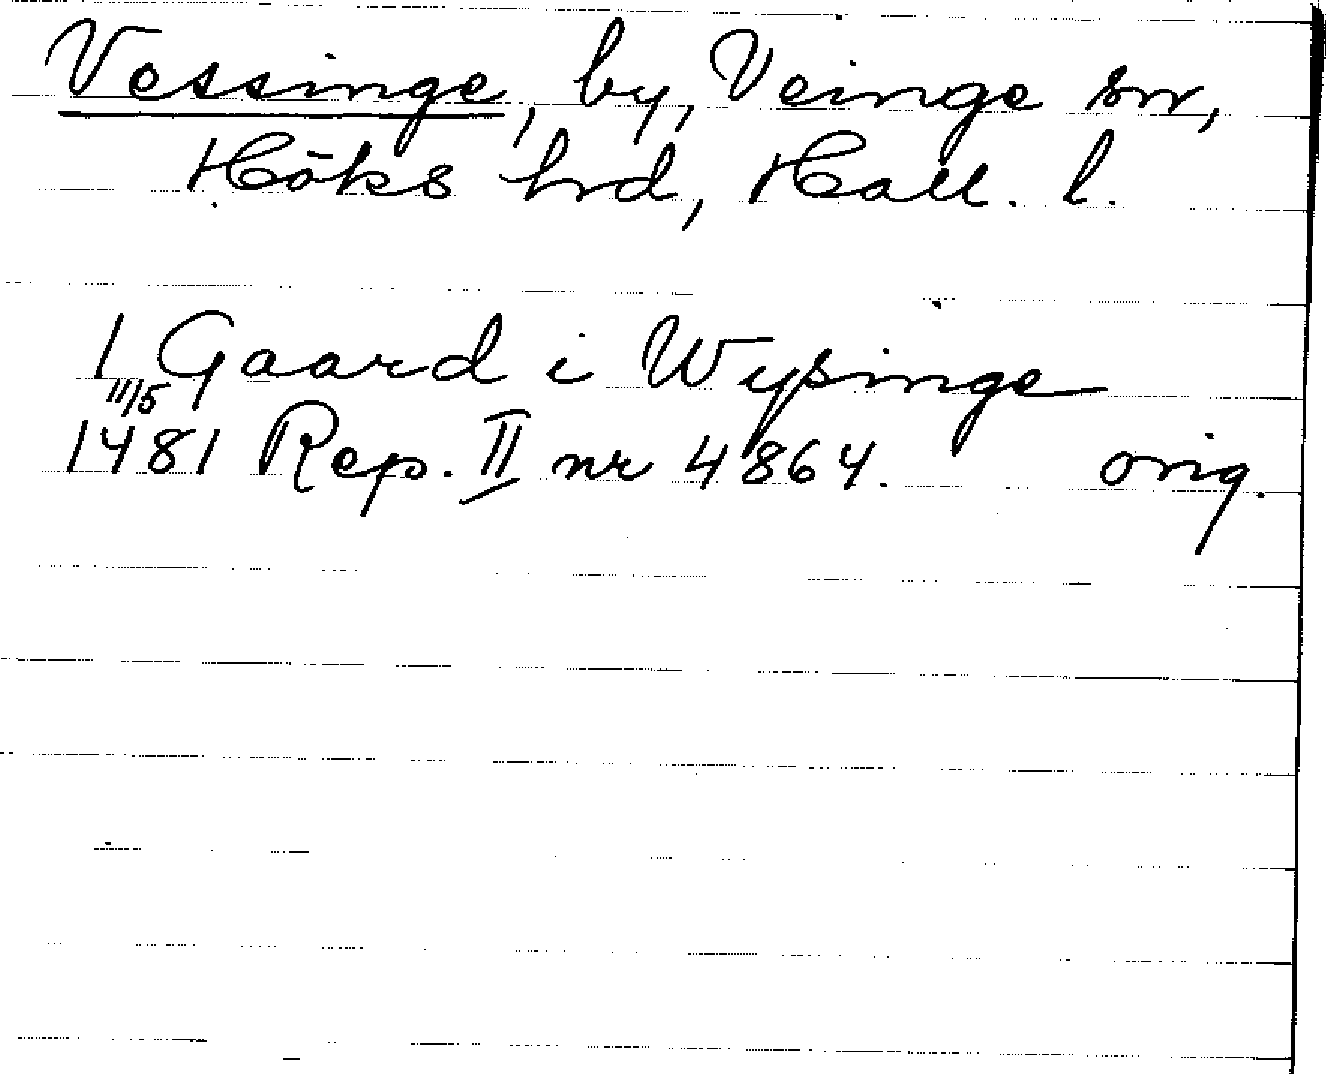 Vessinge, by, Veinge sn,
Höks hrd, Hall. l.
1 Gaard i Wysinge
11/5
1481 Rep. II nr 4864. orig.